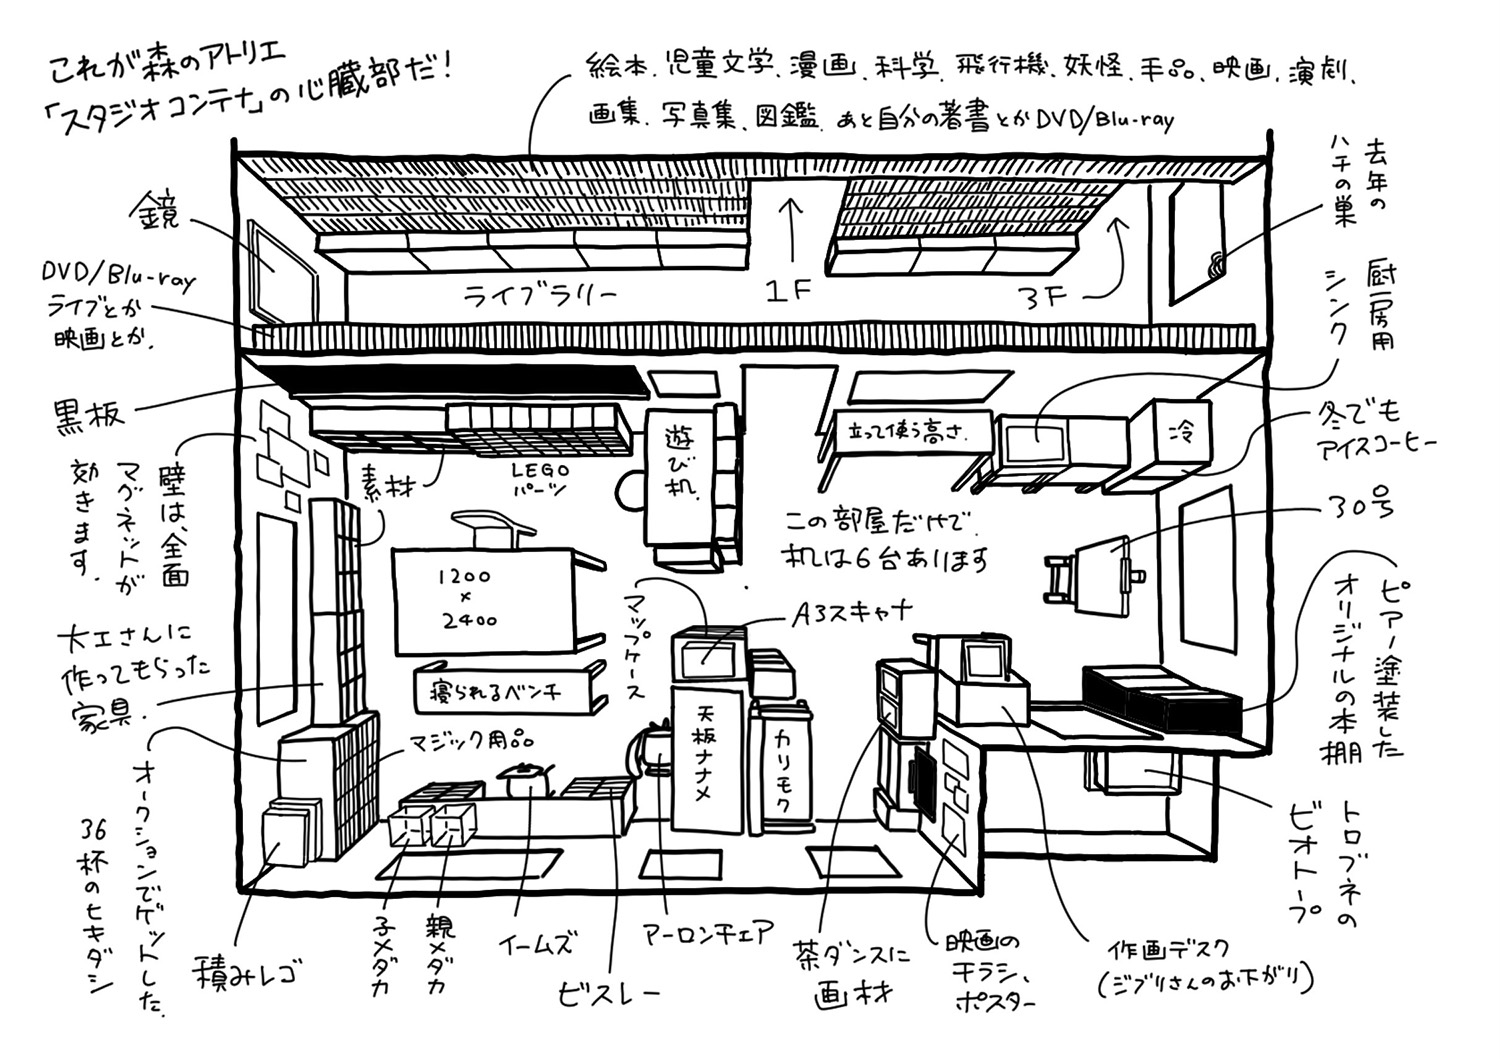 これが森のアトリエ
「スタジオコンテナ」の心臓部だ！
絵本、児童文学、漫画、科学、飛行機、妖怪、手品、映画、演劇、
画集、写真集、図鑑、あと自分の著書とかDVD/Blu-ray
去年の
ハチの巣
鏡
DVD/Blu-ray
ライブとか
映画とか。
ライブラリー
1F
3F
厨房用
シンク
黒板
壁は、全面
マグネットが
効きます。
素材
LEGO
パーツ
遊び机。
立って使う高さ。
冷
冬でも
アイスコーヒー
30号
この部屋だけで
机は6台あります
1200
×
2400
寝られるベンチ
マップケース
A3スキャナ
ピアノ塗装した
オリジナルの本棚
大工さんに
作ってもらった
家具。
マジック用品
天板ナナメ
カリモク
オークションでゲットした
36杯のヒキダシ
積みレゴ
子メダカ
親メダカ
イームズ
ビスレー
アーロンチェア
茶ダンスに
画材
映画の
チラシ、
ポスター
作画デスク
(ジブリさんのお下がり)
トロブネの
ビオトープ